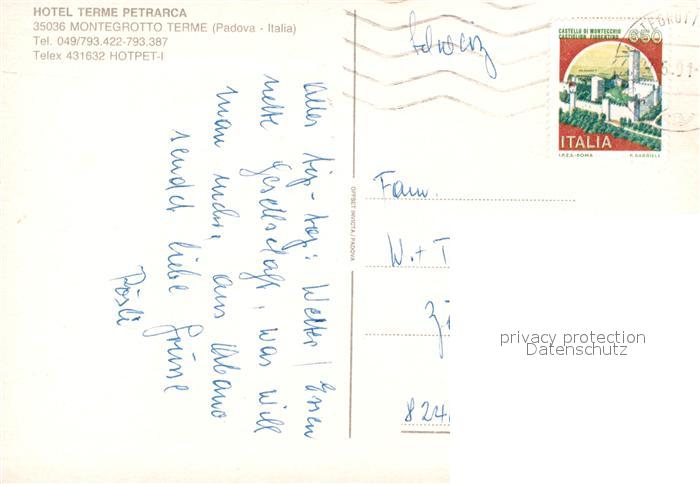 HOTEL TERME PETRARCA
35036 MONTEGROTTO TERME (Padova - Italia)
Tel. 049/793.422-793.387
Telex 431632 HOTPET-I
Schweiz
CASTELLO DI MONTECCHIO
CASTIGLION FIORENTINO
650
ITALIA
I.P.Z.S.-ROMA
Alles tip-top: Wetter / Essen
nette Gesellschaft, was will
man mehr, aus Abano
sendet liebe Grüsse
Rösli
OFFSET INVICTA / PADOVA
Fam.
W. + T
824
privacy protection
Datenschutz